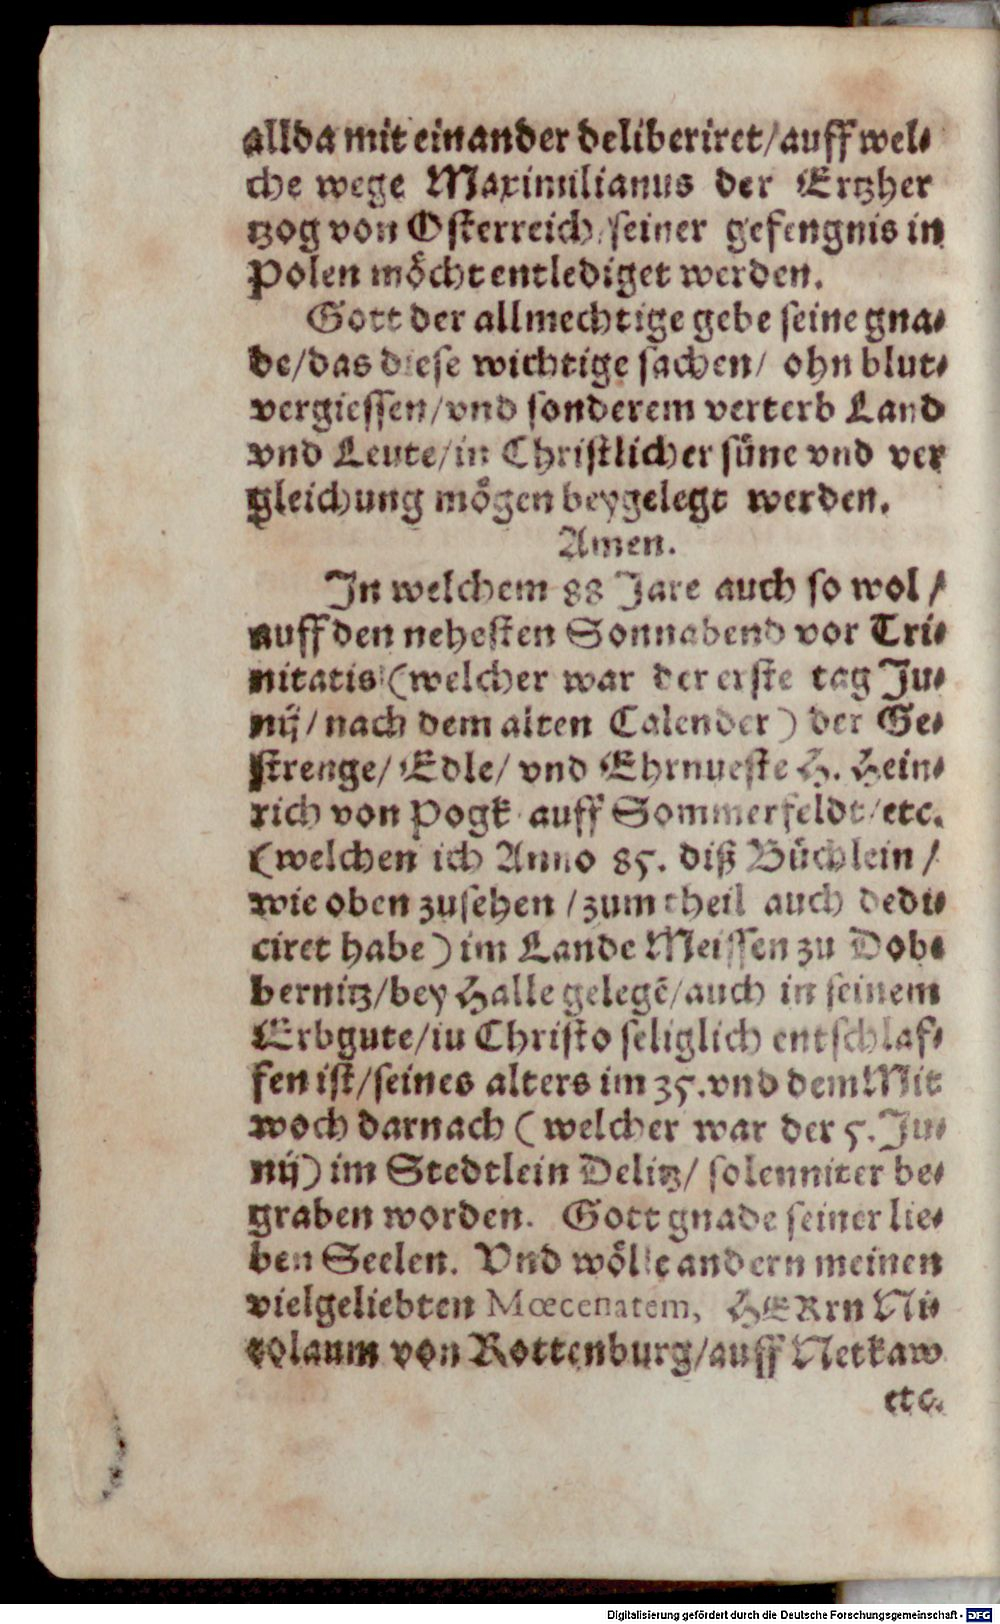 allda mit einander deliberiret/auff wel⸗
che wege Maximilianus der Ertzher
tzog von Osterreich/seiner gefengnis in
Polen möcht entlediget werden.
Gott der allmechtige gebe seine gna⸗
de/das diese wichtige sachen/ ohn blut⸗
vergiessen/vnd sonderem verterb Land
vnd Leute/in Christlicher süne vnd ver
gleichung mögen beygelegt werden.
Amen.
In welchem 88 Jare auch so wol /
auff den nehesten Sonnabend vor Tri⸗
nitatis (welcher war der erste tag Ju⸗
nij/nach dem alten Calender) der Ge⸗
strenge/ Edle/ vnd Ehrnueste H. Hein⸗
rich von Pogk auff Sommerfeldt/etc.
(welchen ich Anno 85. diß Büchlein /
wie oben zusehen /zum theil auch dedi⸗
ciret habe) im Lande Meissen zu Dob⸗
bernitz/bey Halle gelegē/auch in seinem
Erbgute/iu Christo seliglich entschlaf⸗
fen ist/seines alters im 35.vnd dem Mit
woch darnach (welcher war der 5. Ju⸗
nij) im Stedtlein Delitz/ solenniter be⸗
graben worden. Gott gnade seiner lie⸗
ben Seelen. Vnd wölle andern meinen
vielgeliebten Mœcenatem, HERrn Ni⸗
colaum von Rottenburg/auff Netkaw
etc.
Digitalisierung gefördert durch die Deutsche Forschungsgemeinschaft - DFG